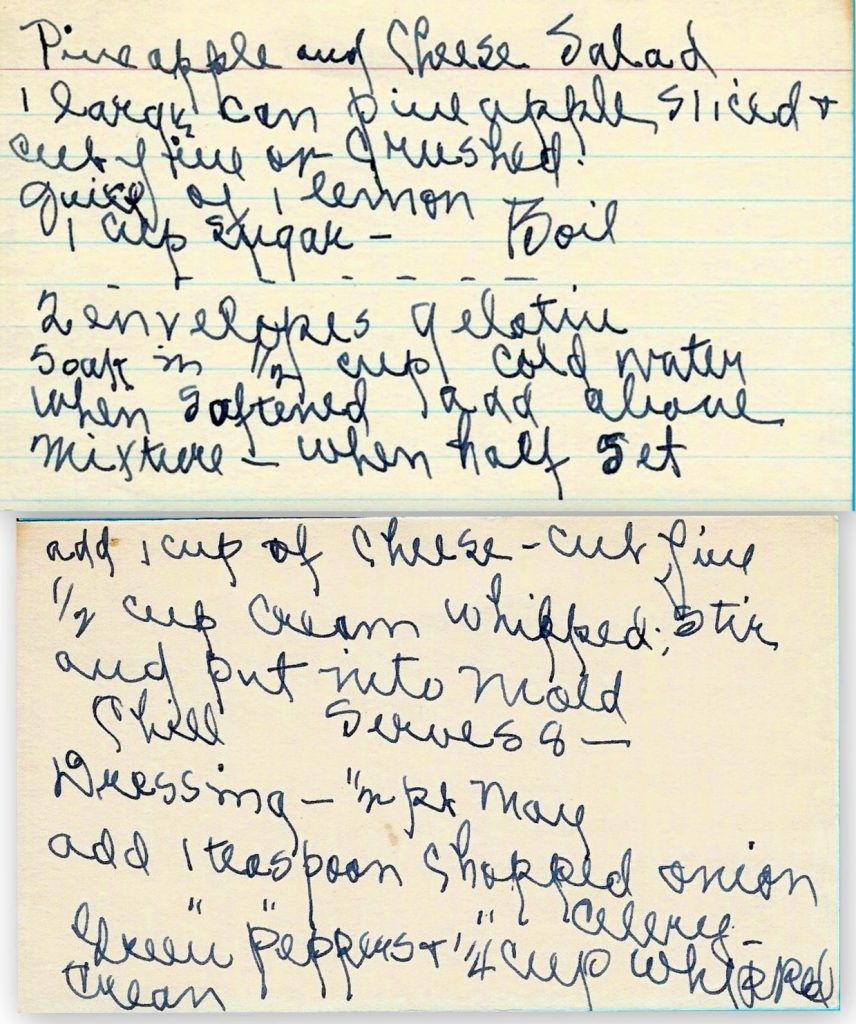 Pineapple and Cheese Salad
1 large can pineapple, sliced +
cut fine or Crushed.
Juice of 1 lemon
1 cup sugar - Boil
- - - - - - -
2 envelopes gelatin
Soak in 1/2 cup cold water
when softened add above
mixture - when half set
add 1 cup of Cheese - cut fine
1/2 cup cream whipped; Stir
and put into mold
Chill Serves 8 —
Dressing - 1/2 pt May
add 1 teaspoon Chopped onion
" " " Celery -
Green peppers + 1/4 cup whipped
cream